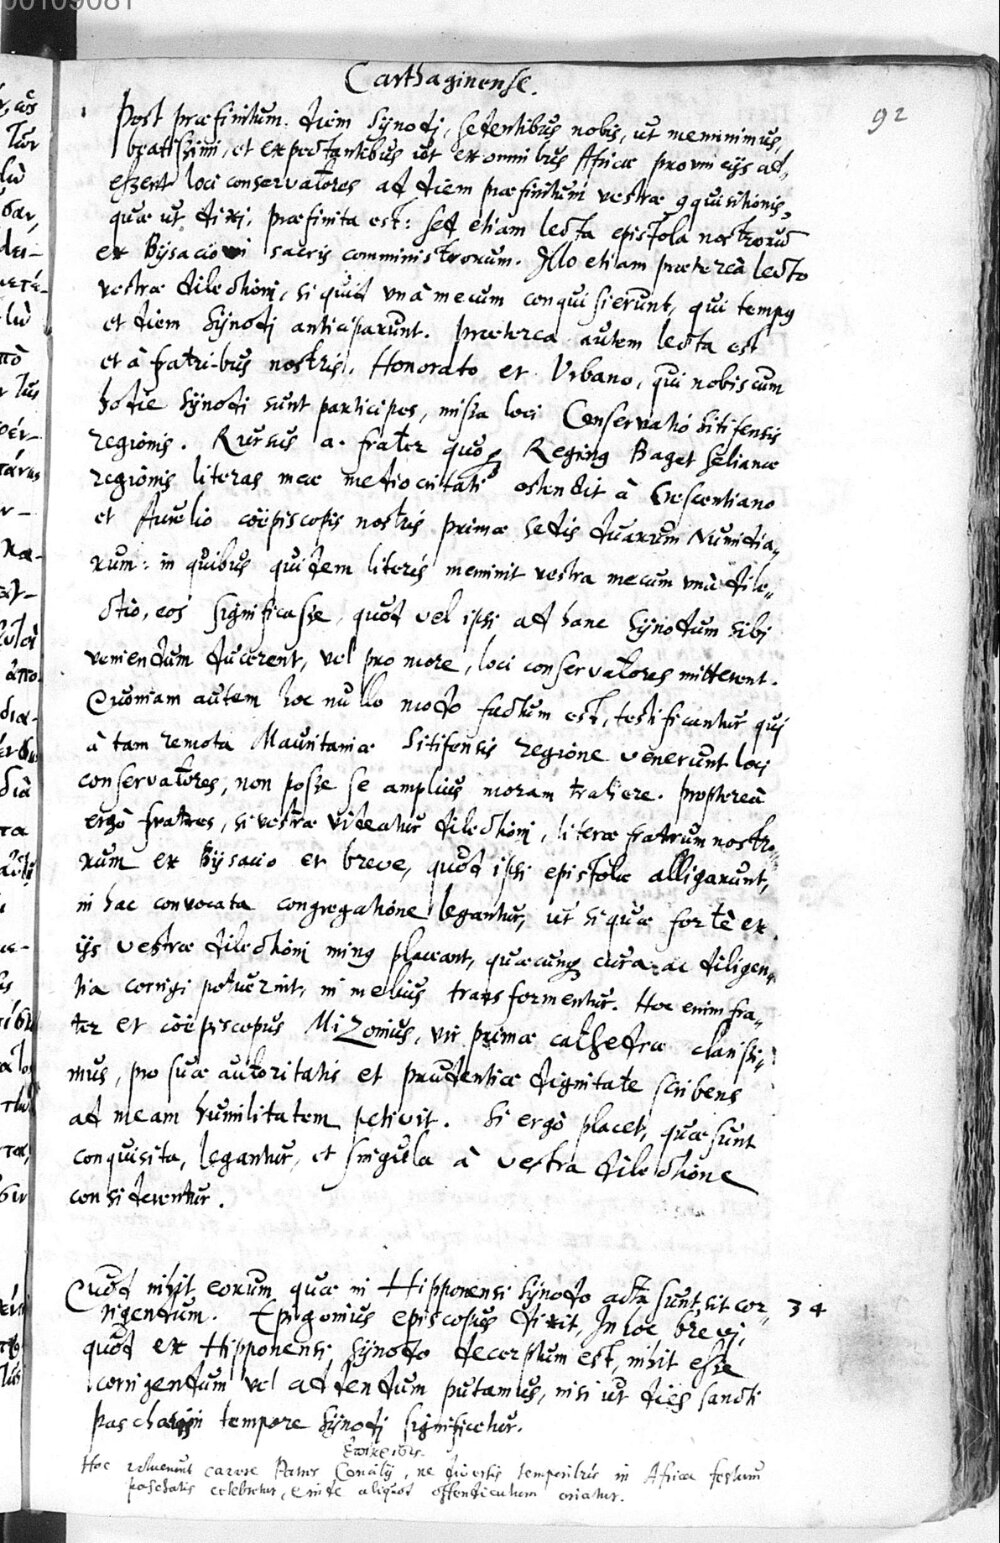 00109081
Carthaginense.
92
Post præfinitum diem Synodj, sedentibus nobis, ut meminimus,
beatissimi, et expectantibus ut ex omnibus Africæ provincijs ad,
essent loci conservatores ad diem præfinitum vestræ conquisitionis,
quæ ut dixj, præfinita est: sed etiam lecta epistola nostrorū
ex Bysacio sacris comministrorum. Illo etiam præterea lecto
vestræ dilectionj, si quid unà mecum conquisierunt, qui tempus
et diem Synodj anticiparunt. Præterea autem lecta est
et à fratribus nostris, Honorato et Urbano, qui nobiscum
hodie Synodi sunt participes, missa loci Conservatio Sitifensis
regionis. Rursus a. frater quoque Reginus Baget seliance
regionis literas meæ mediocritati ostendit à Crescentiano
et Aurelio cöepiscopis nostris primæ sedis duarum Numidia,,
rum: in quibus quidem literis meminit vestra mecum unà dile,,
ctio, eos significasse, quod vel ipsi ad hanc Synodum sibi
veniendum ducerent, vel pro more, loci conservatores mitterent.
Quoniam autem hoc nullo modo factum est, testificantur qui
à tam remota Mauritaniæ Sitifensis regione venerunt loci
conservatores, non posse se amplius moram trahere. Proptereà
ergò fratres, si vestræ videatur dilectionj, literæ fratrum nostro,
rum ex Bysacio et breve, quod ipsi epistolæ alligarunt,
in hac convocata congregatione legantur, ut si quæ fortè ex
ijs vestræ dilectioni minus placeant, quæcunque cura ac diligen,,
tia corrigi potuerint, in melius transformentur. Hoc enim fra,,
ter et cöepiscopus Mizonius, vir primæ cathedræ clarissi,,
mus, pro suæ autoritatis et prudentiæ dignitate scribens
ad meam humilitatem petivit. Si ergò placet, quæ sunt
conquisita, legantur, et singula à vestra dilectione
considerentur.
Quòd nihil eorum quæ in Hipponensi Synodo acta sunt, sit cor,, 34
rigendum. Epigonius episcopus dixit, In hoc brevi,
quòd ex Hipponensi Synodo decerptum est, nihil esse
corrigendum vel addendum putamus, nisi ut dies sancti
paschatis in tempore Synodj significetur.
Hoc voluerunt cavere Patres Concilij, ne diversis temporibus in Africa festum
paschatis celebretur, et inde aliquod offendiculum oriatur.